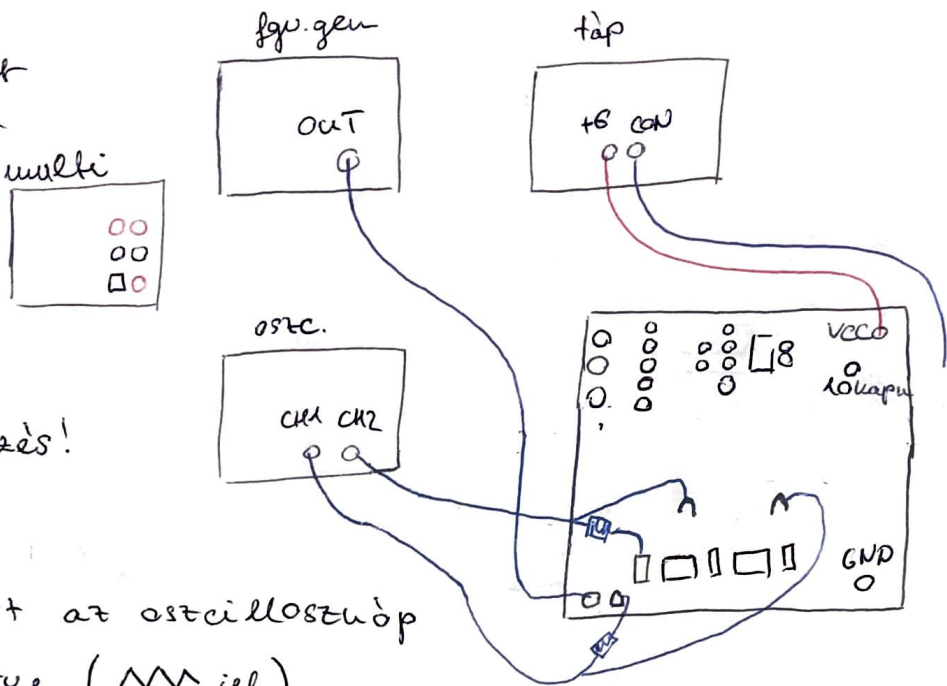 fgv.gen
táp
OUT
+6 CON
multi
oszc.
CH1 CH2
VCC
GND
zés!
t az oszcilloszkóp